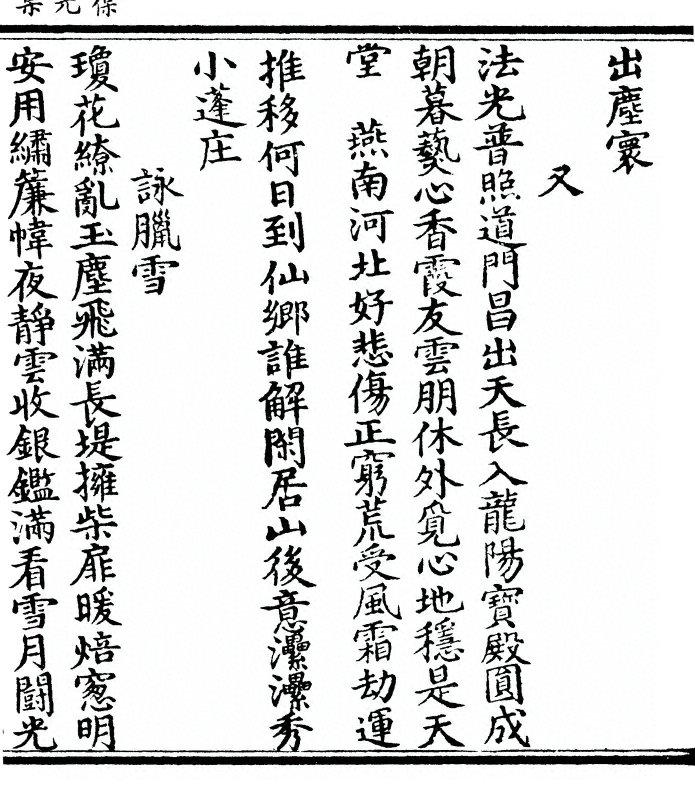 出塵寰
又
法光普照道門昌出天長入龍陽寶殿圓成
朝暮藝心香霞友雲朋休外覓心地穩是天
堂　燕南河北好悲傷正窮荒受風霜劫運
推移何日到仙鄉誰解閑居山後意灅灅秀
小蓬庄
詠臘雪
瓊花繚亂玉塵飛滿長堤擁柴扉暖焙窻明
安用繡簾幃夜靜雲收銀鑑滿看雪月鬪光